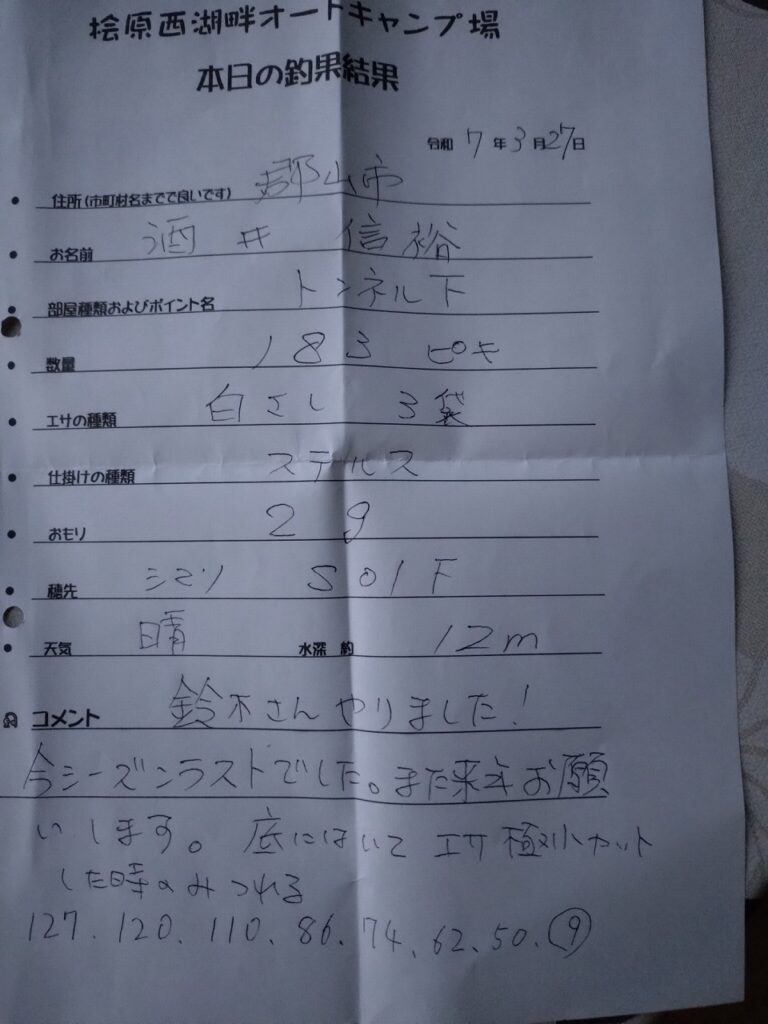 桧原西湖畔オートキャンプ場
本日の釣果結果
令和 7 年 3 月 27 日
住所(市町村名までで良いです) 郡山市
お名前 酒井 信裕
部屋種類およびポイント名 トンネル下
数量 183 ピキ
エサの種類 白さし 3袋
仕掛けの種類 ステルス
おもり 2g
穂先 シマノ S01F
天気 晴 水深 約 12m
コメント 鈴木さんやりました!
今シーズンラストでした。また来年お願
いします。底にはいて エサ極小カット
した時のみつれる
127. 120. 110. 86. 74. 62. 50. ⑨